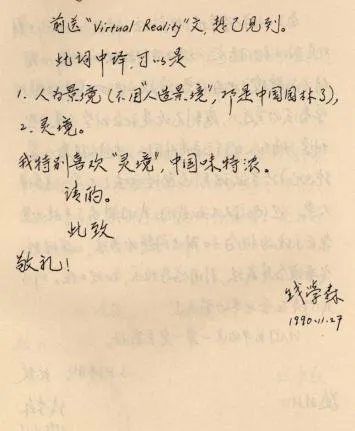 前送“Virtual Reality”文,想已见到。
此词中译,可以是
1. 人为景境(不用“人造景境”,那是中国园林了),
2. 灵境。
我特别喜欢“灵境”,中国味特浓。
请酌。
此致
敬礼!
钱学森
1990.11.27